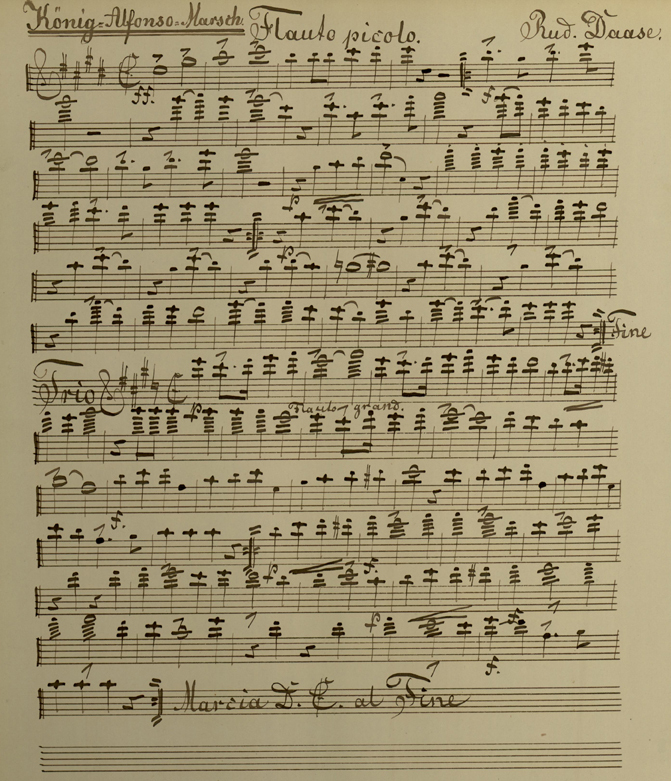 König-Alfonso-Marsch. Flauto picolo. Rud. Daase.
ff.
f
p
p
Fine
Trio
p Flauto grand.
f.
p f.
p f.
f.
Marcia D. C. al Fine